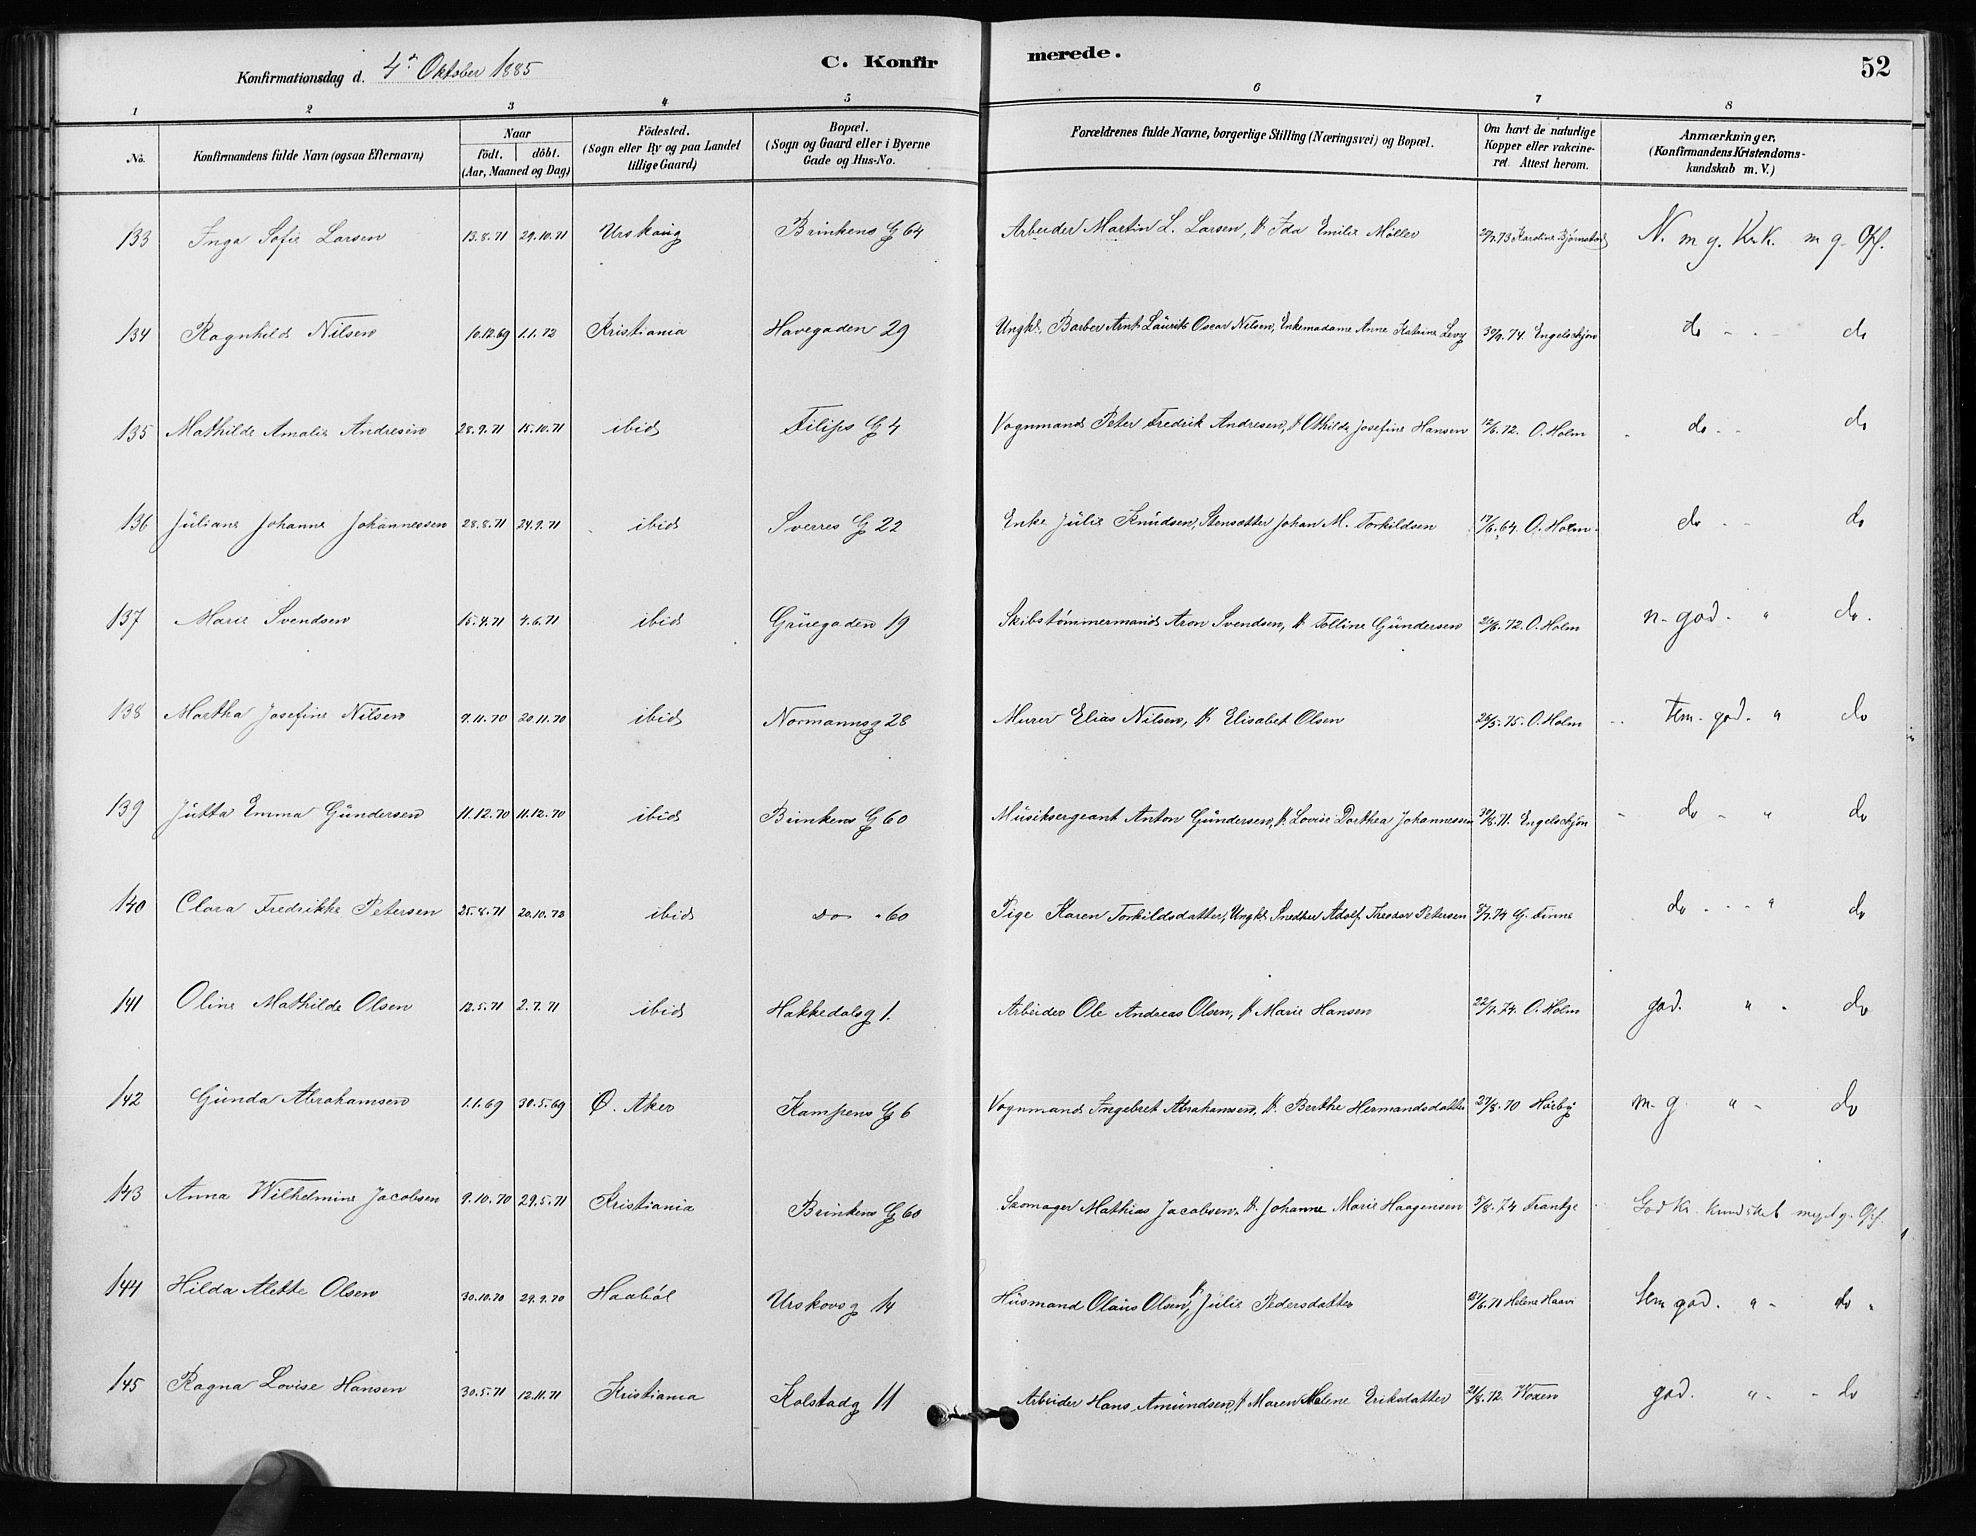 Konfirmationsdag d. 4de Oktober 1885 C. Konfir merede. 52
1 2 3 4 5 6 7 8
No. Konfirmandens fulde Navn (ogsaa Efternavn) Naar födt. döbt. (Aar, Maaned og Dag) Födested. (Sogn eller By og paa Landet tillige Gaard) Bopæl. (Sogn og Gaard eller i Byerne Gade og Hus-No. Forældrenes fulde Navne, borgerlige Stilling (Næringsvei) og Bopæl. Om havt de naturlige Kopper eller vakcineret. Attest herom. Anmærkninger. (Konfirmandens Kristendomskundskab m. V.)
133 Inga Sofie Larsen 13.8.71 29.10.71 Urskaug Brinkens G 64 Arbeider Martin L. Larsen, H Ida Emilie Møller 73 Karoline Bjørnstad N. m g. Kr.K. m g. Opf.
134 Ragnhild Nilsen 10.12.69 1.1.72 Kristiania Havegaden 29 Ungkl. Barber Arnt Laurits Oscar Nilsen, Enkemadame Anne Katrine Levy 30/9.74. Engelschjøn do - - do
135 Mathilde Amalie Andresen 28.9.71 15.10.71 ibid Filips G 4 Vognmand Peter Fredrik Andresen, H Othilde Josefine Hansen 12/6.72. O. Holm do - - do
136 Juliane Johanne Johannessen 28.8.71 24.9.71 ibid Sverres G 22 Enke Julie Knudsen, Stensætter Johan M. Torkildsen 17/6.64. O. Holm do - - do
137 Marie Svendsen 15.4.71 4.6.71 ibid Grüegaden 19 Skibstømmermand Aron Svendsen, H Tolline Gundersen 72. O. Holm n. god. " do.
138 Martha Josefine Nilsen 9.11.70 20.11.70 ibid Normannsg 28 Murer Elias Nilsen, H Elisabet Olsen 75. O. Holm tem. god. " do
139 Jutta Emma Gundersen 11.12.70 11.12.70 ibid Brinkens G 60 Musiksergeant Anton Gundersen, H. Lovise Dorthea Johannessen 30/8.71. Engelschjøn do - " do
140 Clara Fredrikke Petersen 25.8.71 20.10.72 ibid do " 60 Pige Karen Torkildsdatter, Ungkl. Snedker Adolf Theodor Petersen 8/7.74 G. Finne do - - " do
141 Oline Mathilde Olsen 12.5.71 2.7.71 ibid Hakkedalsg 1. Arbeider Ole Andreas Olsen, H Marie Hansen 22/7.74. O. Holm god. " - do
142 Gunda Abrahamsen 1.1.69 30.5.69 Ø. Aker Kampens G 6 Vognmand Ingebret Abrahamsen, H. Berthe Hermandsdatter 27/8.70 Hørbye m. g. " - do
143 Anna Wilhelmine Jacobsen 9.10.70 29.5.71 Kristiania Brinkens G 60 Skomager Mathias Jacobsen, H. Johanne Marie Haagensen 5/8.74 Frantze God Kr. kundskab meget g. Opf.
144 Hilda Alette Olsen 30.10.70 29.9.70 Haabøl Urskovsg 14 Husmand Olaus Olsen, H Julie Pedersdatter 71 Helene Haavi tem god. " - do "
145 Ragna Lovise Hansen 30.5.71 12.11.71 Kristiania Kolstadg 11 Arbeider Hans Amundsen, H Maren Malene Eriksdatter 21/8.72 Woxen god. " - - do